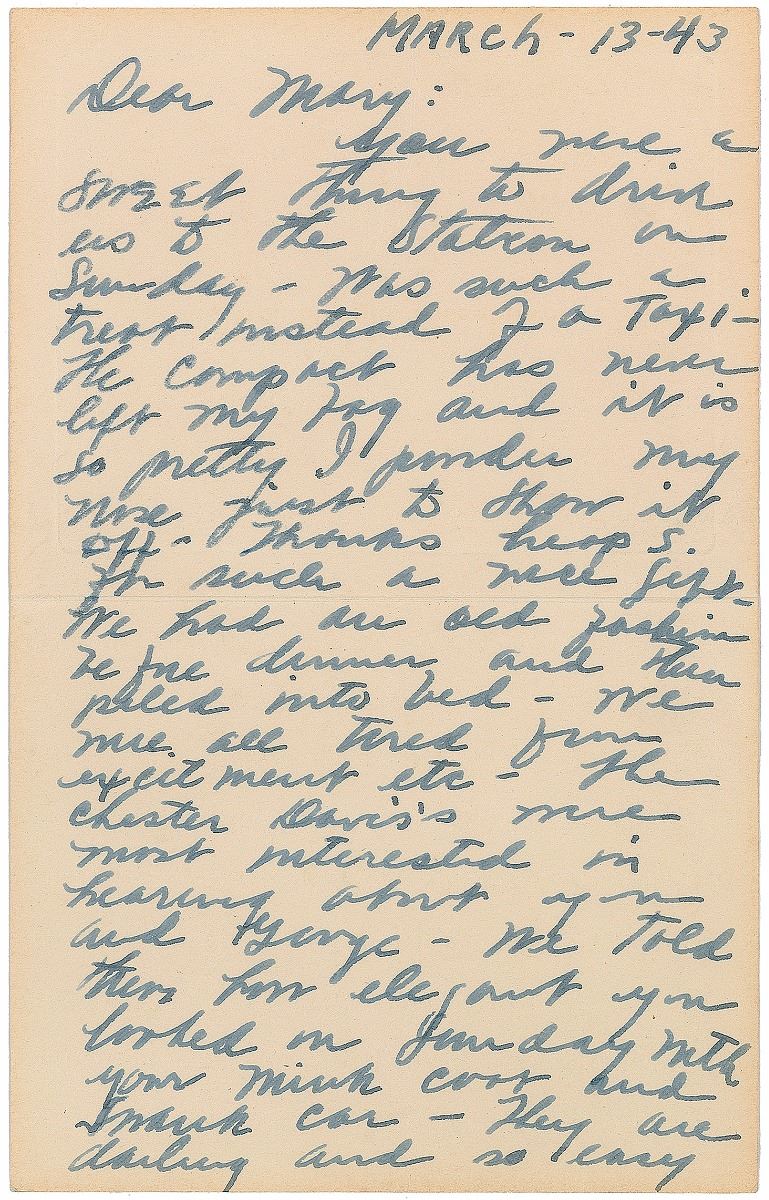 MARCH - 13-43
Dear Mary:
You were a
sweet thing to drive
us to the Station on
Sunday - Was such a
treat instead of a Taxi -
The compact has never
left my bag and it is
so pretty I powder my
nose just to show it
off - Thanks heaps.
for such a nice gift -
We had an old fashion
before dinner and then
piled into bed - We
were all tired from
excitment etc - The
Chester Davis's were
most interested in
hearing about you
and George - We Told
them how elegant you
looked on Sunday with
your mink coat and
swank car - They are
darling and so easy